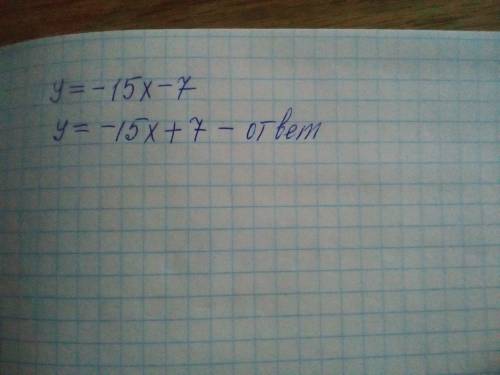 y=-15x-7
y=-15x+7 - ответ